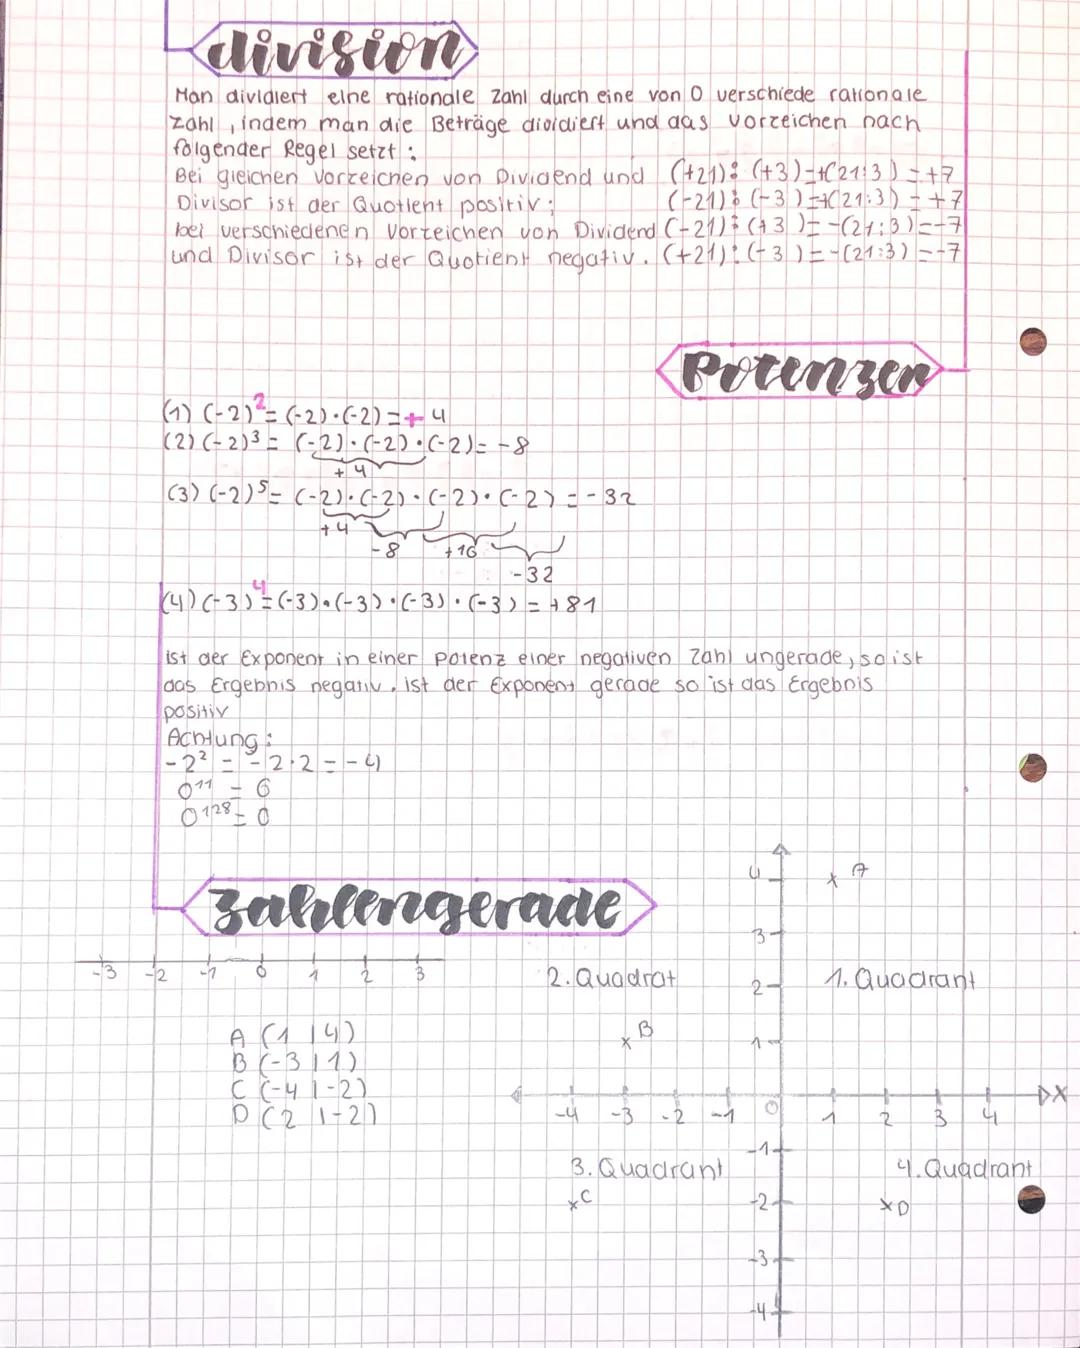 division
Man dividiert eine rationale Zahl durch eine von 0 verschiede rationale
Zahl , indem man die Beträge dividiert und das vorzeichen nach
folgender Regel setzt :
Bei gleichen Vorzeichen von Dividend und (+21) : (+3) = +(21:3) = +7
Divisor ist der Quotient positiv; (-21) : (-3) = +(21:3) = +7
bei verschiedenen Vorzeichen von Dividend (-21) : (+3) = -(21:3) = -7
und Divisor ist der Quotient negativ. (+21) : (-3) = -(21:3) = -7
Potenzen
(1) (-2)² = (-2)·(-2) = + 4
(2) (-2)³ = (-2)·(-2)·(-2) = -8
+4
(3) (-2)⁵ = (-2)·(-2)·(-2)·(-2) = -32
+4
-8 +16
-32
(4) (-3)⁴ = (-3)·(-3)·(-3)·(-3) = +81
ist der Exponent in einer Potenz einer negativen Zahl ungerade, so ist
das Ergebnis negativ. ist der Exponent gerade so ist das Ergebnis
positiv
Achtung :
-2² = -2·2 = -4
0¹¹ = 0
0¹²⁸ = 0
Zahlengerade
-3 -2 -1 0 1 2 3
A (1|4)
B (-3|1)
C (-4|-2)
D (2|-2)
4 x A
3
2. Quadrat 2 1. Quadrant
x B
1
-4 -3 -2 -1 0 1 2 3 4 X
-1
3. Quadrant 4. Quadrant
x C -2 x D
-3
-4